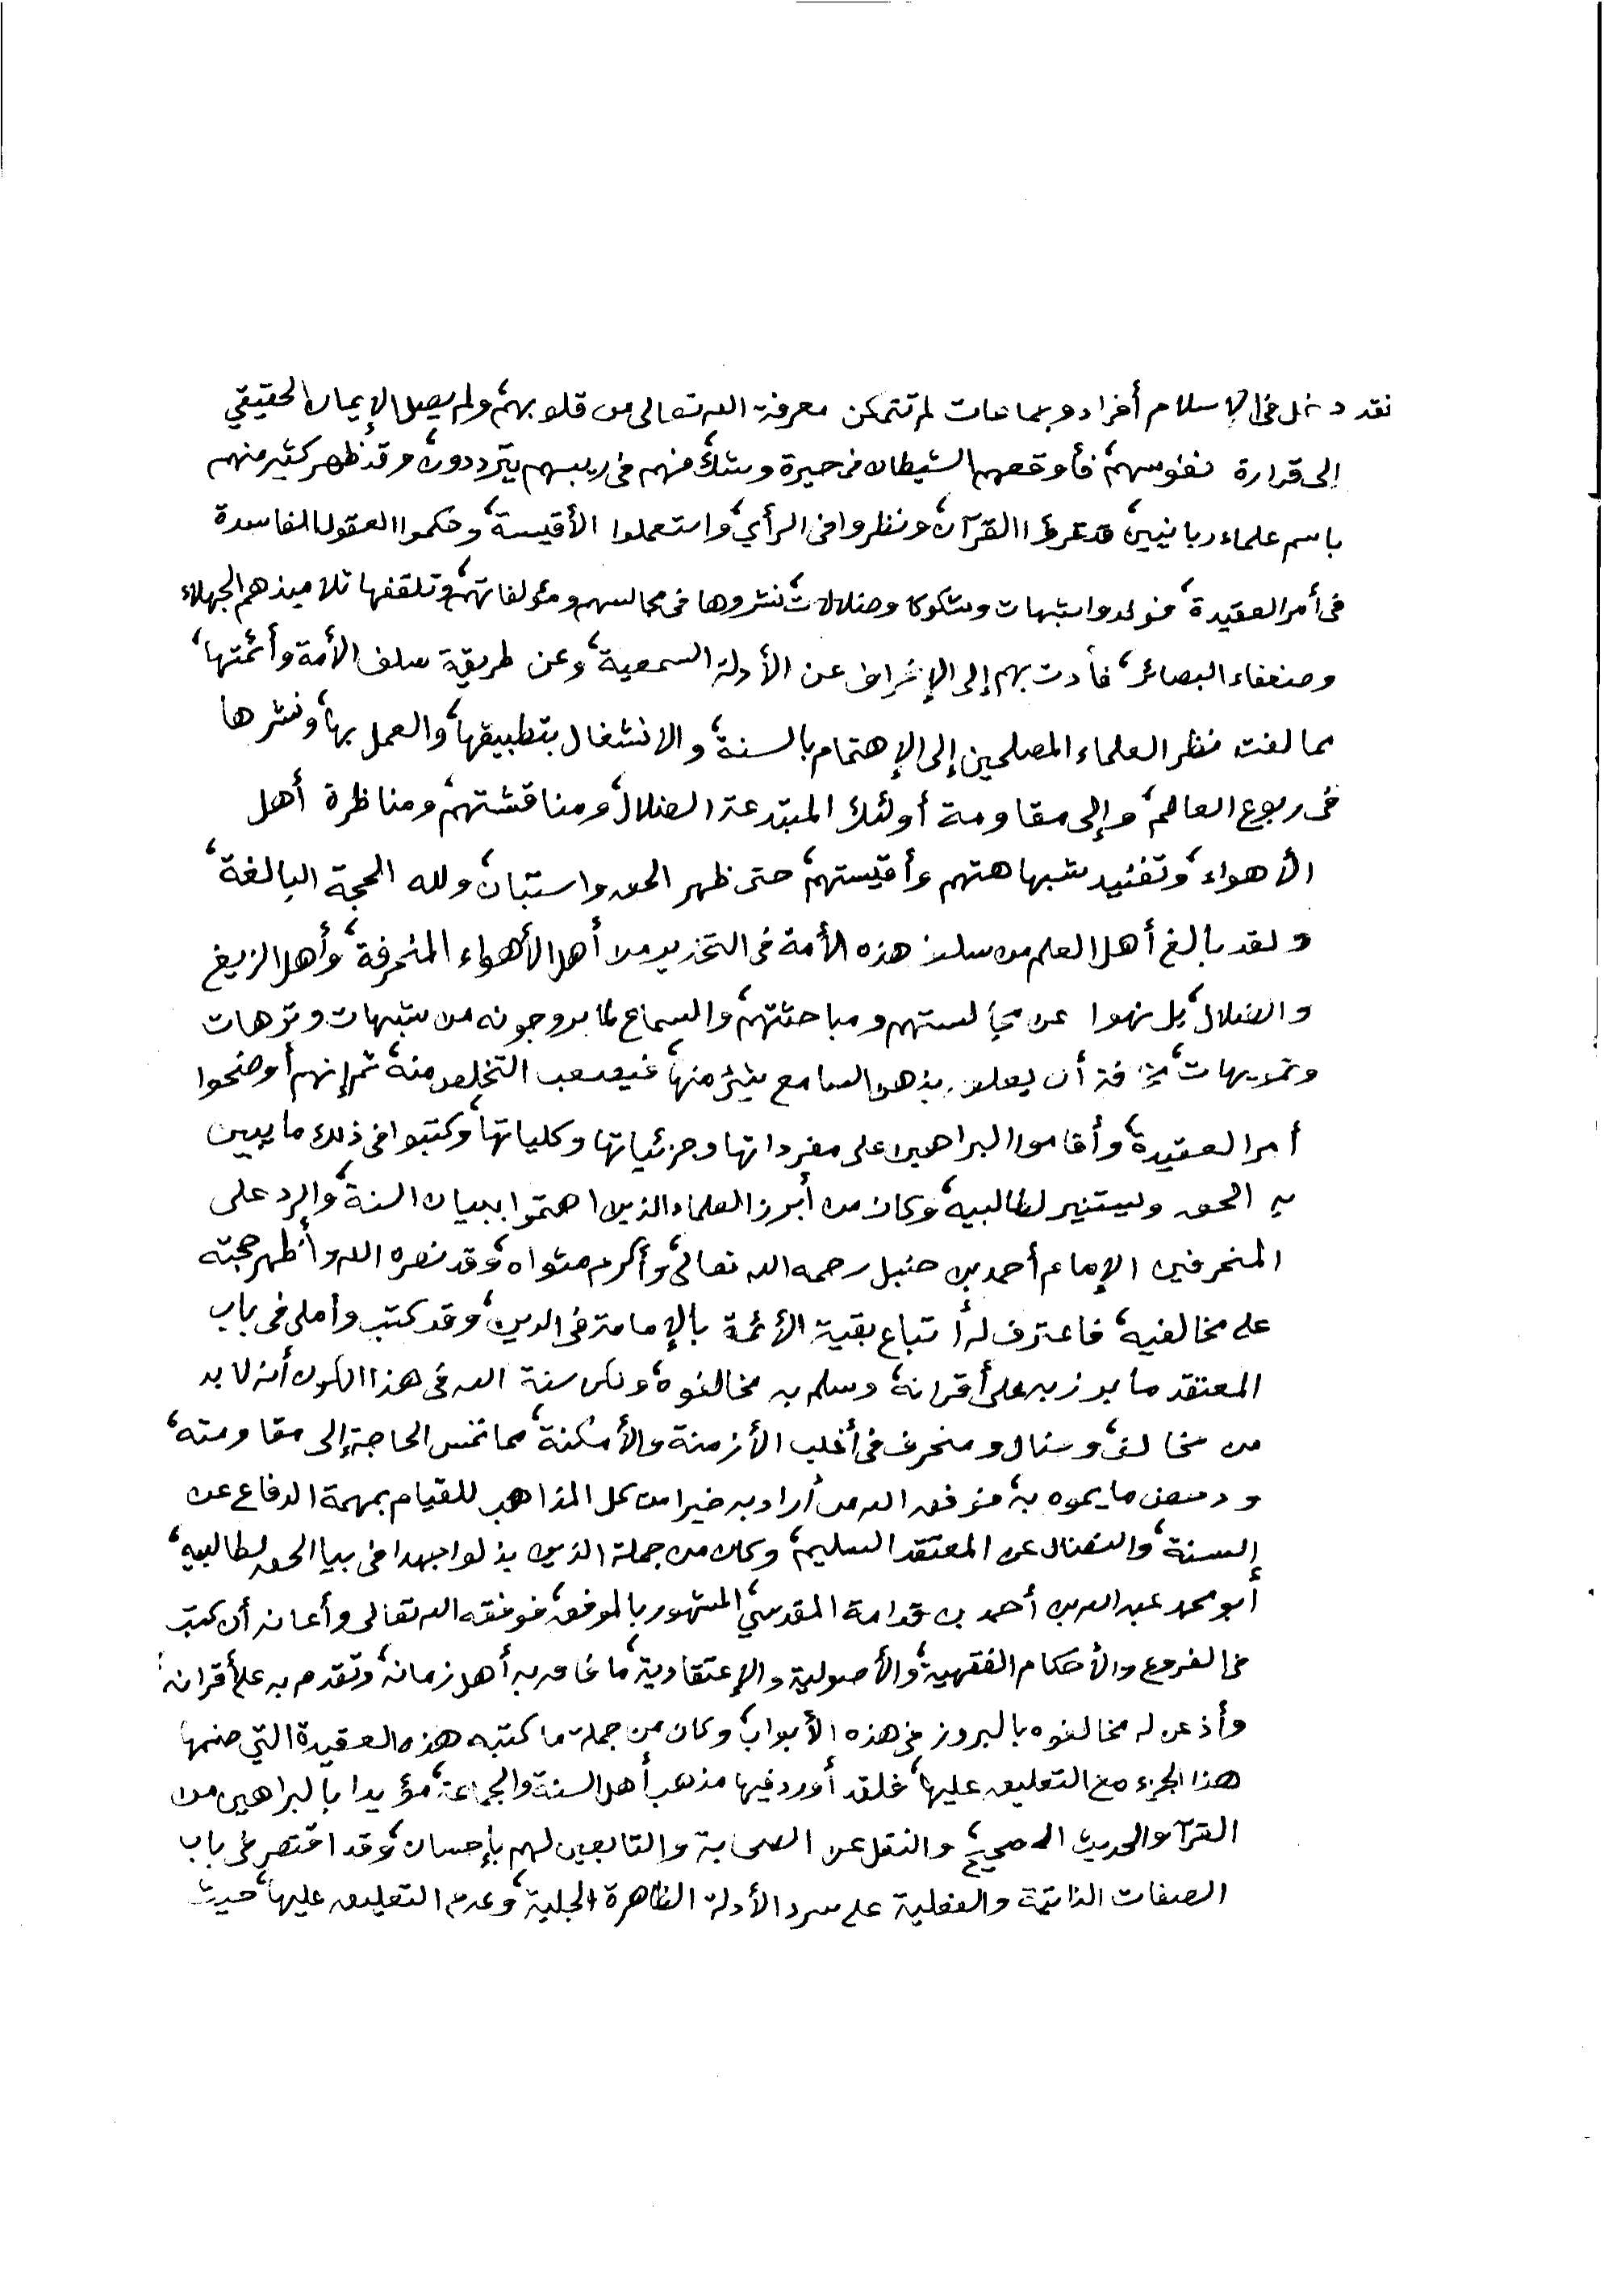 فقد دخل في الإسلام أفراد وجماعات لم تتمكن معرفة الله تعالى من قلوبهم، ولم يصل الإيمان الحقيقي
إلى قرارة نفوسهم، فأوقعهم الشيطان في حيرة وشك، فهم في ريبهم يترددون، وقد ظهر كثير منهم
باسم علماء ربانيين، قد قرؤا القرآن، ونظروا في الرأي، واستعملوا الأقيسة، وحكموا العقول الفاسدة
في أمر العقيدة، فولدوا شبهات وشكوكا وضلالات، نشروها في مجالسهم ومؤلفاتهم، وتلقفها تلاميذهم الجهلاء
وضعفاء البصائر، فأدت بهم إلى الإنحراف عن الأدلة السمعية، وعن طريقة سلف الأمة وأئمتها،
مما لفت نظر العلماء المصلحين إلى الإهتمام بالسنة، والانشغال بتطبيقها، والعمل بها، ونشرها
في ربوع العالم، وإلى مقاومة أولئك المبتدعة الضلال، ومناقشتهم، ومناظرة أهل
الأهواء، وتفنيد شبهاهتهم وأقيستهم، حتى ظهر الحق واستبان، ولله الحجة البالغة،
ولقد بالغ أهل العلم من سلف هذه الأمة في التحذير من أهل الأهواء المنحرفة، وأهل الزيغ
والضلال، بل نهوا عن مجالستهم ومباحثتهم، والسماع لما يروجونه من شبهات وترهات
وتمويهات، مخافة أن يعلق بذهن السامع شيئ منها، فيصعب التخلص منه، ثم إنهم أوضحوا
أمر العقيدة، وأقاموا البراهين على مفرداتها وجزئياتها وكلياتها، وكتبوا في ذلك ما يبين
به الحق ويستنير لطالبيه، وكان من أبرز العلماء الذين اهتموا ببيان السنة، والرد على
المنحرفين الإمام أحمد بن حنبل رحمه الله تعالى، وأكرم مثواه، وقد نصره الله وأظهر حجته
على مخالفيه، فاعترف له أتباع بقية الأئمة بالإمامة في الدين، وقد كتب وأملى في باب
المعتقد ما برز به على أقرانه، وسلم به مخالفوه، ولكن سنة الله في هذا الكون أنه لابد
من مخالف، وضال ومنحرف في أغلب الأزمنة والأمكنة، مما تمس الحاجة إلى مقاومته،
ودحض ما يموه به، فوفق الله من أراد به خيرا من كل المذاهب للقيام بمهمة الدفاع عن
السنة، والنضال عن المعتقد السليم، وكان من جملة الذين بذلوا جهدا في بيا الحق لطالبيه،
أبو محمد عبد الله بن أحمد بن قدامة المقدسي، المشهور بالموفق، فوفقه الله تعالى وأعانه أن كتب
في الفروع والأحكام الفقهية، والأصولية والإعتقادية، ما فاق به أهل زمانه، وتقدم به على أقرانه،
وأذعن له مخالفوه بالبروز في هذه الأبواب، وكان من جملة ما كتبه هذه العقيدة التي ضمها
هذا الجزء مع التعليق عليها، فلقد أورد فيها مذهب أهل السنة والجماعة، مؤيدا بالبراهين من
القرآ والحديث الصحيح، والنقل عن الصحابة والتابعين لهم بإحسان، وقد اقتصر في باب
الصفات الذاتية والفعلية على سرد الأدلة الظاهرة الجلية، وعدم التعليق عليها، حيث